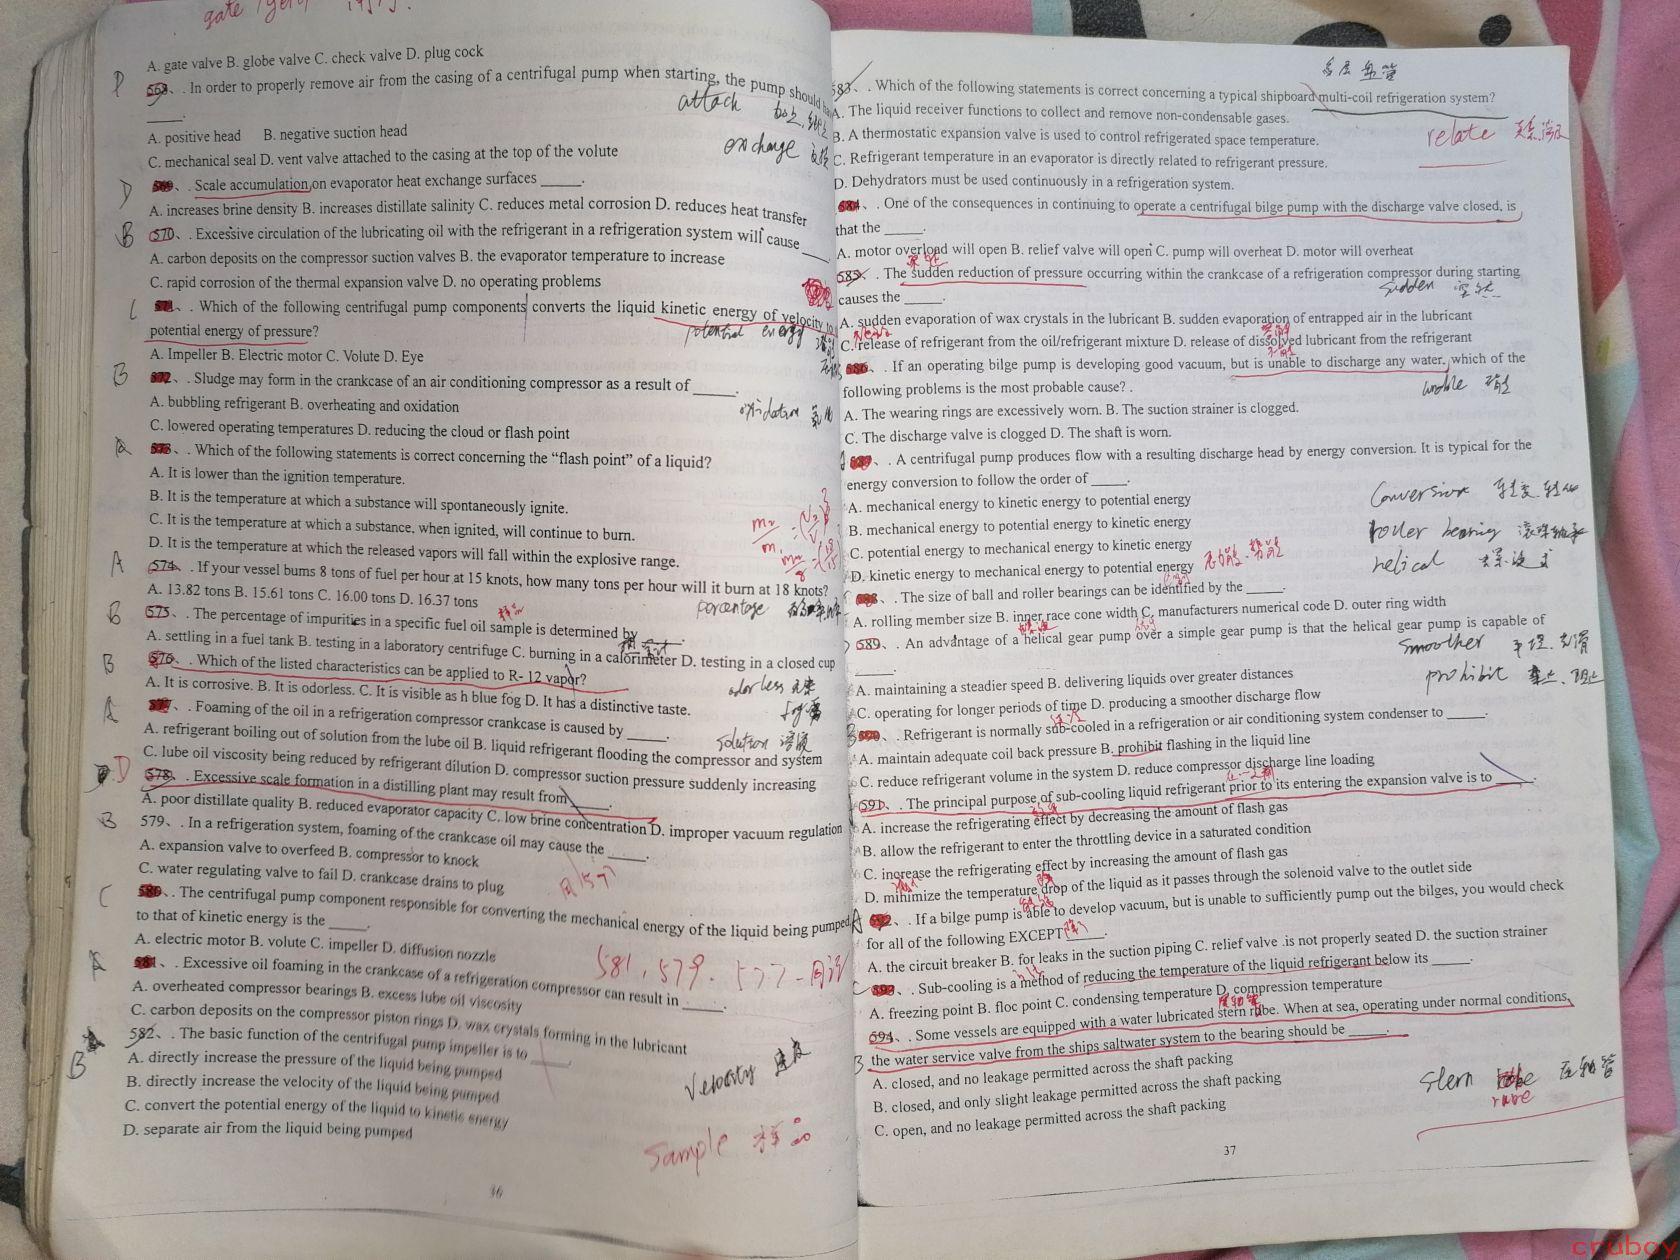 gate
A. gate valve B. globe valve C. check valve D. plug cock
D 568、. In order to properly remove air from the casing of a centrifugal pump when starting, the pump should
_____.
attach
A. positive head B. negative suction head
exchange
C. mechanical seal D. vent valve attached to the casing at the top of the volute
D 569、. Scale accumulation on evaporator heat exchange surfaces _____.
A. increases brine density B. increases distillate salinity C. reduces metal corrosion D. reduces heat transfer
B 570、. Excessive circulation of the lubricating oil with the refrigerant in a refrigeration system will cause _____.
A. carbon deposits on the compressor suction valves B. the evaporator temperature to increase
C. rapid corrosion of the thermal expansion valve D. no operating problems
C 571、. Which of the following centrifugal pump components converts the liquid kinetic energy of velocity to
potential energy of pressure?
potential energy
A. Impeller B. Electric motor C. Volute D. Eye
B 572、. Sludge may form in the crankcase of an air conditioning compressor as a result of _____.
A. bubbling refrigerant B. overheating and oxidation
oxidation 氧化
C. lowered operating temperatures D. reducing the cloud or flash point
573、. Which of the following statements is correct concerning the “flash point” of a liquid?
A. It is lower than the ignition temperature.
B. It is the temperature at which a substance will spontaneously ignite.
C. It is the temperature at which a substance, when ignited, will continue to burn.
D. It is the temperature at which the released vapors will fall within the explosive range.
A 574、. If your vessel bums 8 tons of fuel per hour at 15 knots, how many tons per hour will it burn at 18 knots?
A. 13.82 tons B. 15.61 tons C. 16.00 tons D. 16.37 tons
porcentage
B 575、. The percentage of impurities in a specific fuel oil sample is determined by _____.
A. settling in a fuel tank B. testing in a laboratory centrifuge C. burning in a calorimeter D. testing in a closed cup
B 576、. Which of the listed characteristics can be applied to R- 12 vapor?
odorless 无味
A. It is corrosive. B. It is odorless. C. It is visible as h blue fog D. It has a distinctive taste.
fog 雾
A 577、. Foaming of the oil in a refrigeration compressor crankcase is caused by _____.
solution 溶液
A. refrigerant boiling out of solution from the lube oil B. liquid refrigerant flooding the compressor and system
C. lube oil viscosity being reduced by refrigerant dilution D. compressor suction pressure suddenly increasing
D 578、. Excessive scale formation in a distilling plant may result from _____.
A. poor distillate quality B. reduced evaporator capacity C. low brine concentration D. improper vacuum regulation
B 579、. In a refrigeration system, foaming of the crankcase oil may cause the _____.
A. expansion valve to overfeed B. compressor to knock
同577
C. water regulating valve to fail D. crankcase drains to plug
C 580、. The centrifugal pump component responsible for converting the mechanical energy of the liquid being pumped
to that of kinetic energy is the _____.
A. electric motor B. volute C. impeller D. diffusion nozzle
581, 579. 577
A 581、. Excessive oil foaming in the crankcase of a refrigeration compressor can result in _____.
A. overheated compressor bearings B. excess lube oil viscosity
C. carbon deposits on the compressor piston rings D. wax crystals forming in the lubricant
B 582、. The basic function of the centrifugal pump impeller is to _____.
A. directly increase the pressure of the liquid being pumped
Velocity 速度
B. directly increase the velocity of the liquid being pumped
C. convert the potential energy of the liquid to kinetic energy
D. separate air from the liquid being pumped
Sample 样品
36
多层盘管
583、. Which of the following statements is correct concerning a typical shipboard multi-coil refrigeration system?
A. The liquid receiver functions to collect and remove non-condensable gases.
relate
B. A thermostatic expansion valve is used to control refrigerated space temperature.
C. Refrigerant temperature in an evaporator is directly related to refrigerant pressure.
D. Dehydrators must be used continuously in a refrigeration system.
584、. One of the consequences in continuing to operate a centrifugal bilge pump with the discharge valve closed, is
that the _____.
A. motor overload will open B. relief valve will open C. pump will overheat D. motor will overheat
585、. The sudden reduction of pressure occurring within the crankcase of a refrigeration compressor during starting
sudden 突然
causes the _____.
A. sudden evaporation of wax crystals in the lubricant B. sudden evaporation of entrapped air in the lubricant
C. release of refrigerant from the oil/refrigerant mixture D. release of dissolved lubricant from the refrigerant
586、. If an operating bilge pump is developing good vacuum, but is unable to discharge any water, which of the
unable
following problems is the most probable cause? .
A. The wearing rings are excessively worn. B. The suction strainer is clogged.
C. The discharge valve is clogged D. The shaft is worn.
587、. A centrifugal pump produces flow with a resulting discharge head by energy conversion. It is typical for the
energy conversion to follow the order of _____.
conversion 转变.转化
A. mechanical energy to kinetic energy to potential energy
B. mechanical energy to potential energy to kinetic energy
roller bearing
C. potential energy to mechanical energy to kinetic energy
helical
D. kinetic energy to mechanical energy to potential energy
588、. The size of ball and roller bearings can be identified by the _____.
A. rolling member size B. inner race cone width C. manufacturers numerical code D. outer ring width
589、. An advantage of a helical gear pump over a simple gear pump is that the helical gear pump is capable of
_____.
smoother 平稳.光滑
A. maintaining a steadier speed B. delivering liquids over greater distances
prohibit 禁止.阻止
C. operating for longer periods of time D. producing a smoother discharge flow
B 590、. Refrigerant is normally sub-cooled in a refrigeration or air conditioning system condenser to _____.
A. maintain adequate coil back pressure B. prohibit flashing in the liquid line
C. reduce refrigerant volume in the system D. reduce compressor discharge line loading
591、. The principal purpose of sub-cooling liquid refrigerant prior to its entering the expansion valve is to _____.
A. increase the refrigerating effect by decreasing the amount of flash gas
B. allow the refrigerant to enter the throttling device in a saturated condition
C. increase the refrigerating effect by increasing the amount of flash gas
D. minimize the temperature drop of the liquid as it passes through the solenoid valve to the outlet side
A 592、. If a bilge pump is able to develop vacuum, but is unable to sufficiently pump out the bilges, you would check
for all of the following EXCEPT _____.
A. the circuit breaker B. for leaks in the suction piping C. relief valve .is not properly seated D. the suction strainer
C 593、. Sub-cooling is a method of reducing the temperature of the liquid refrigerant below its _____.
A. freezing point B. floc point C. condensing temperature D. compression temperature
594、. Some vessels are equipped with a water lubricated stern tube. When at sea, operating under normal conditions,
B the water service valve from the ships saltwater system to the bearing should be _____.
A. closed, and no leakage permitted across the shaft packing
stern
B. closed, and only slight leakage permitted across the shaft packing
C. open, and no leakage permitted across the shaft packing
37
cruboy